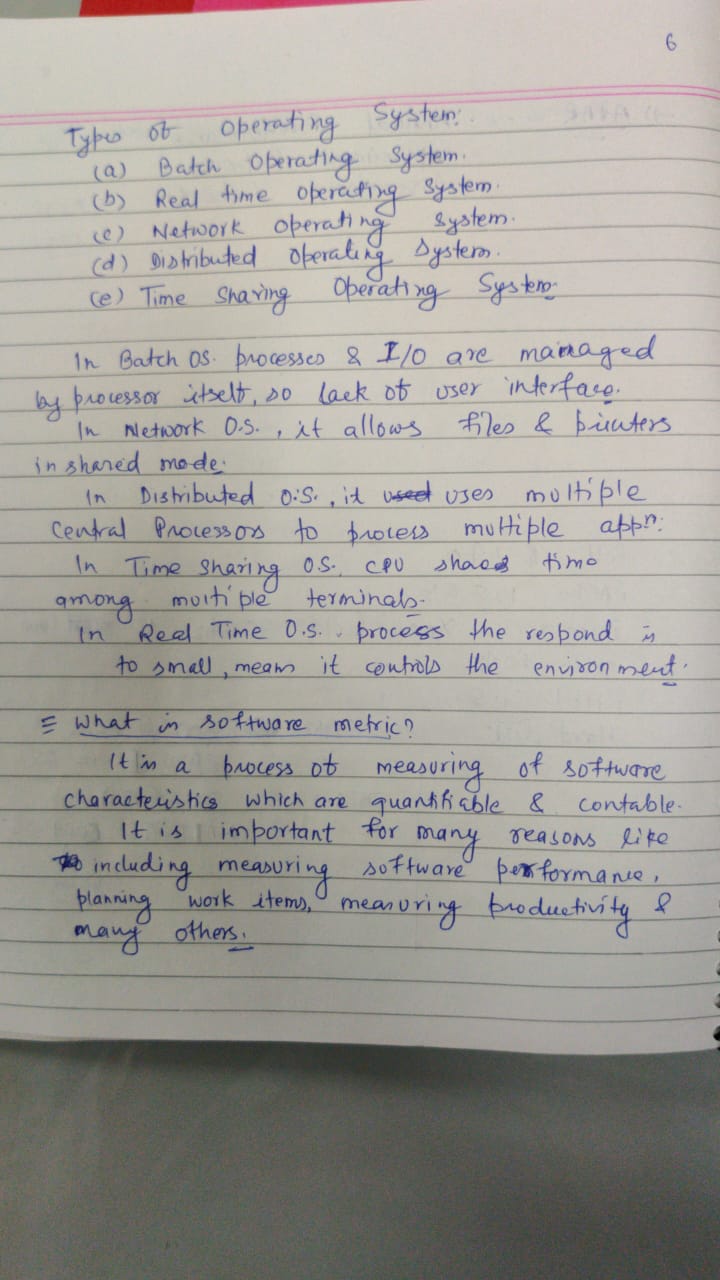 6
Types of Operating System:
(a) Batch Operating System.
(b) Real time Operating System.
(c) Network Operating System.
(d) Distributed Operating System.
(e) Time Sharing Operating System.
In Batch OS. processes & I/O are mainaged
by processor itself, so lack of user interface.
In Network O.S., it allows files & printers
in shared mode.
In Distributed O.S., it used uses multiple
Central Processors to process multiple appn.
In Time Sharing OS. CPU shares time
among multiple terminals.
In Real Time O.S. process the respond is
to small, means it controls the environment.
= What is software metric?
It is a process of measuring of software
characteristics which are quantifiable & contable.
It is important for many reasons like
including measuring software performance,
planning work items, measuring productivity &
many others.